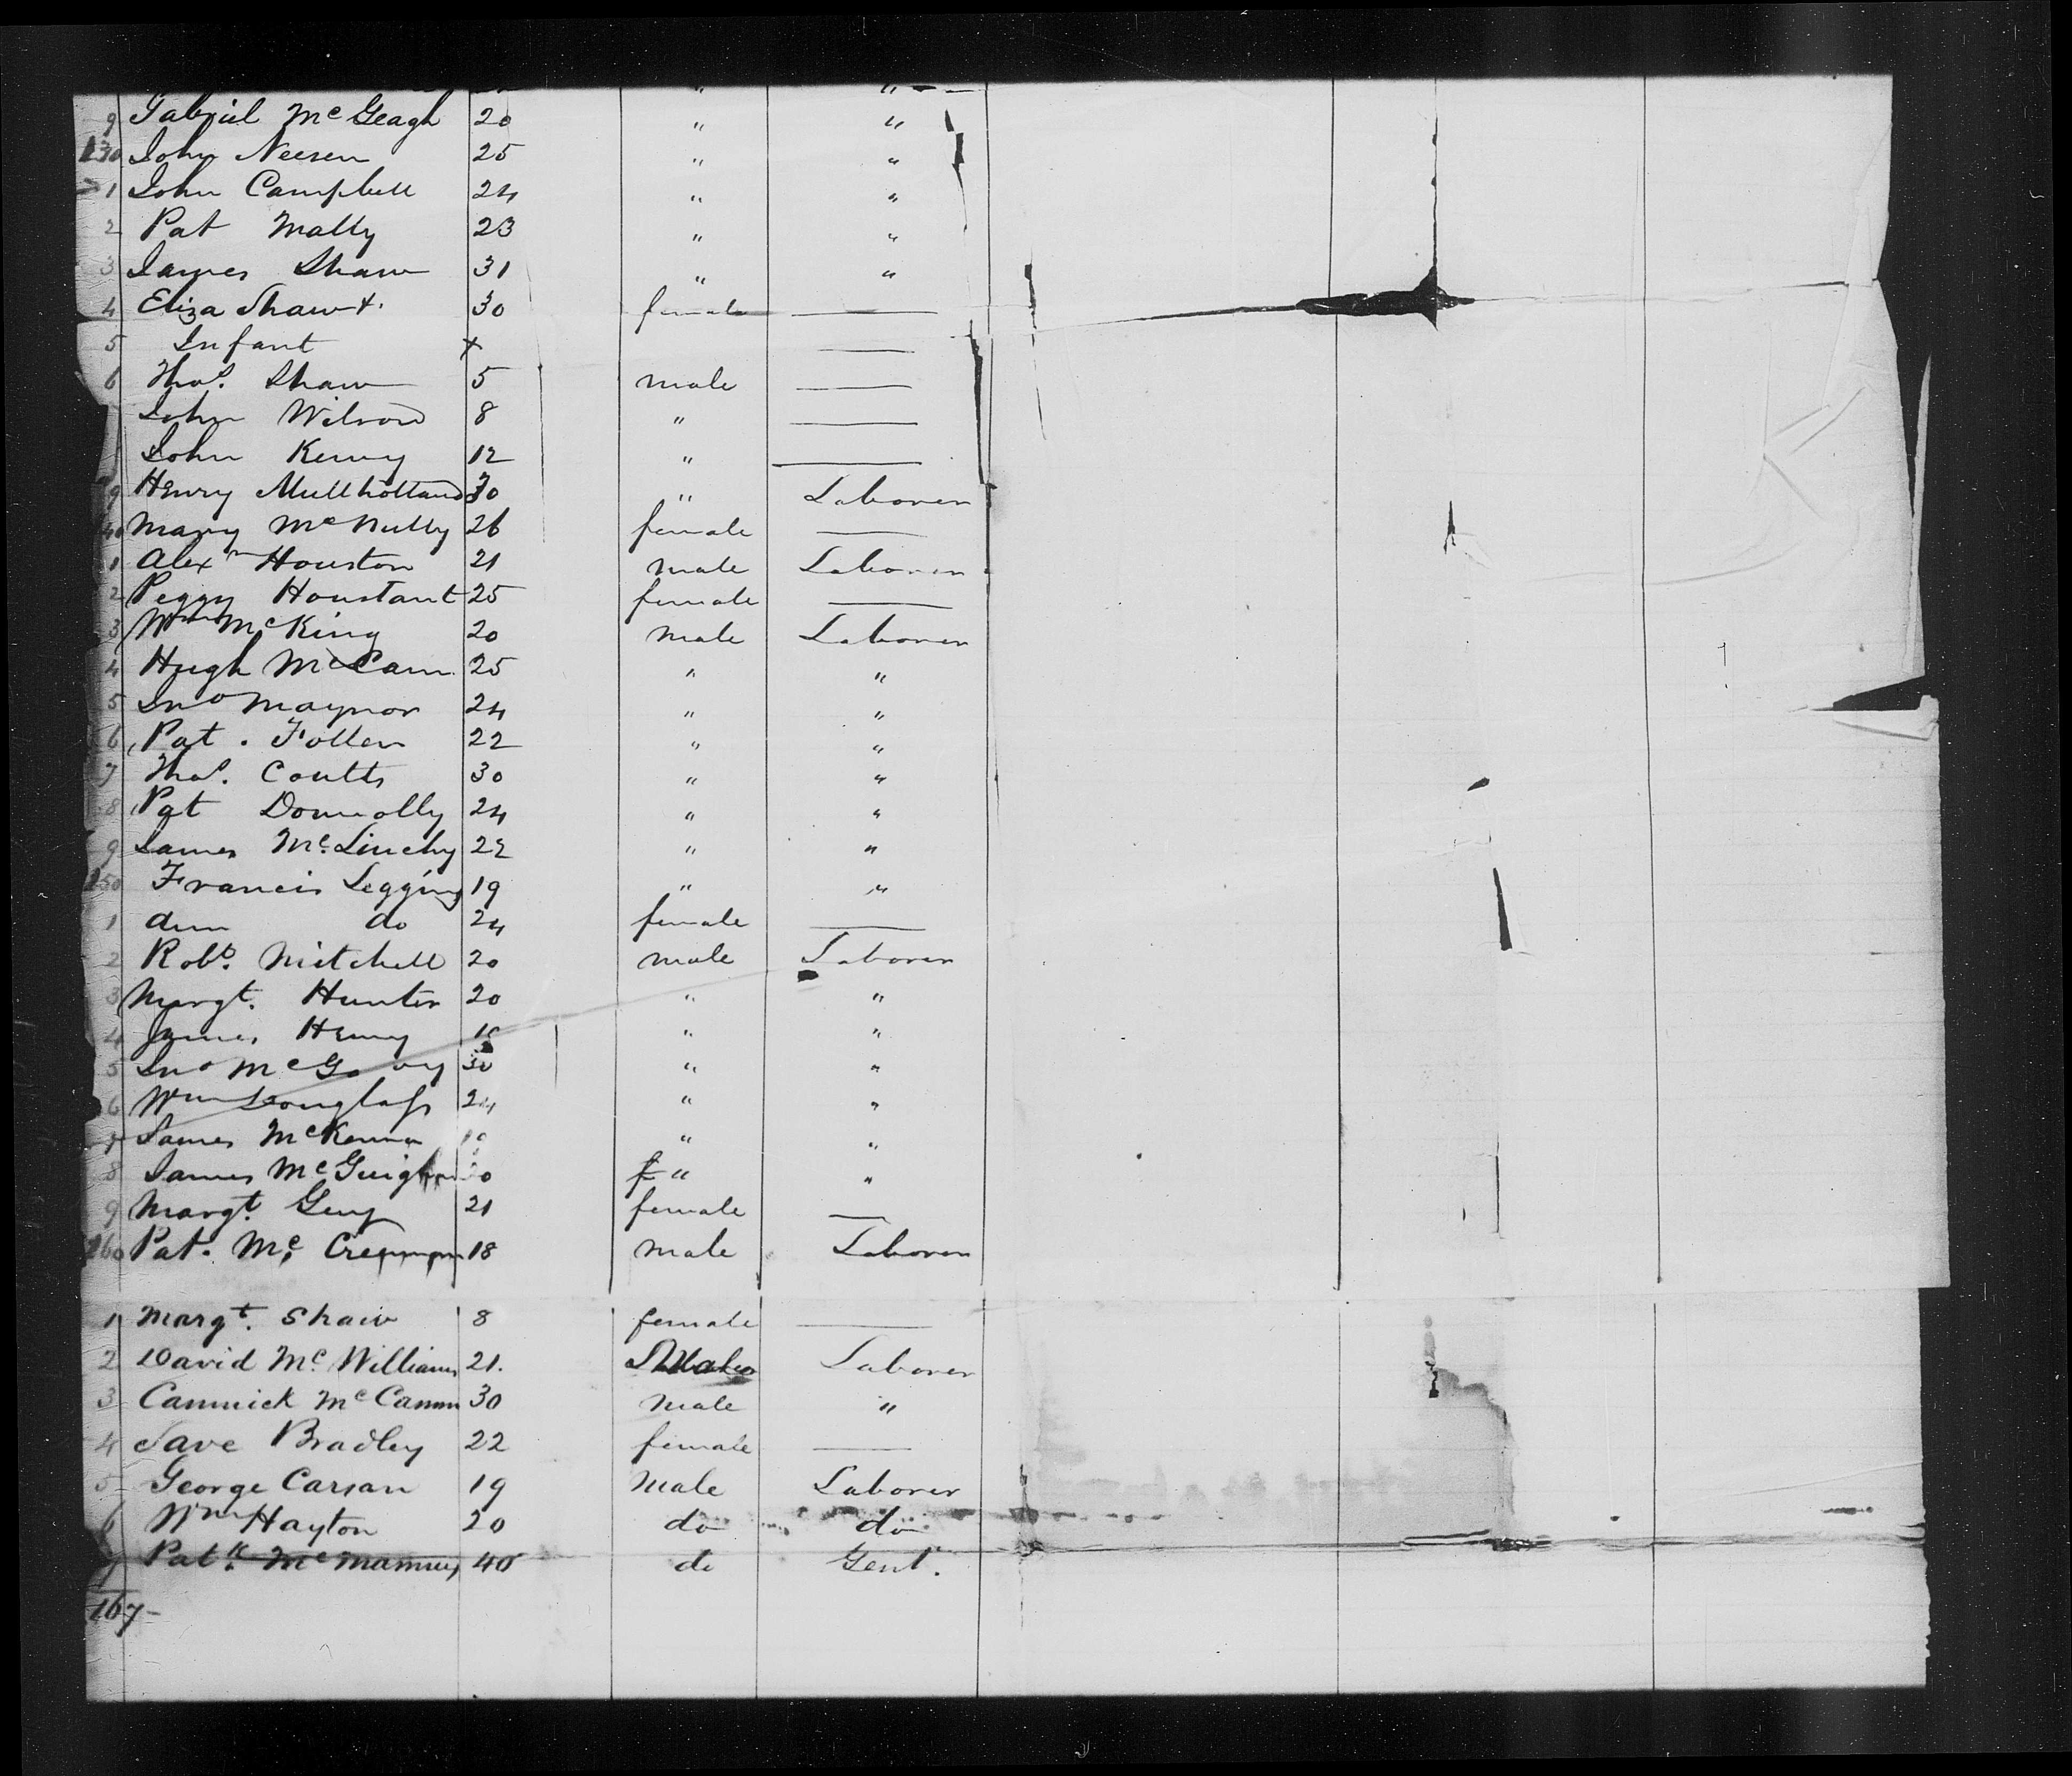 9 Gabriel Mc Geagh 20 " "
130 John Neesen 25 " "
1 John Campbell 24 " "
2 Pat Mally 23 " "
3 James Shaw 31 " "
4 Eliza Shaw + 30 female —
5 Infant + —
6 Thos. Shaw 5 male —
John Wilson 8 " —
John Kenny 12 " —
9 Henry Mullholland 30 " Laborer
40 Mary Mc Nulty 26 female —
1 Alexr Houston 21 male Laborer
2 Peggy Houstant 25 female —
3 Wm Mc King 20 male Laborer
4 Hugh Mc Cann 25 " "
5 Jno Maynor 24 " "
6 Pat. Follen 22 " "
7 Thos. Coutts 30 " "
8 Pat Donnolly 24 " "
9 James Mc. Linchy 22 " "
150 Francis Legging 19 " "
1 Ann do 24 female —
2 Robt. Mitchell 20 male Laborer
3 Margt. Hunter 20 " "
4 James Henry " "
5 Jno 30 " "
6 Wm Douglass 24 " "
7 James McKenna " "
8 James Mc Guigan " "
9 Margt. 21 female —
160 Pat. Mc 18 male Laborer
1 Margt. Shaw 8 female —
2 David Mc. Williams 21. Male Laborer
3 Cannick Mc Cann 30 Male "
4 Save Bradley 22 female —
5 George Carson 19 Male Laborer
6 Wm Hayton 20 do do
7 Patk. Mc Mamey 40 do Gent.
167-